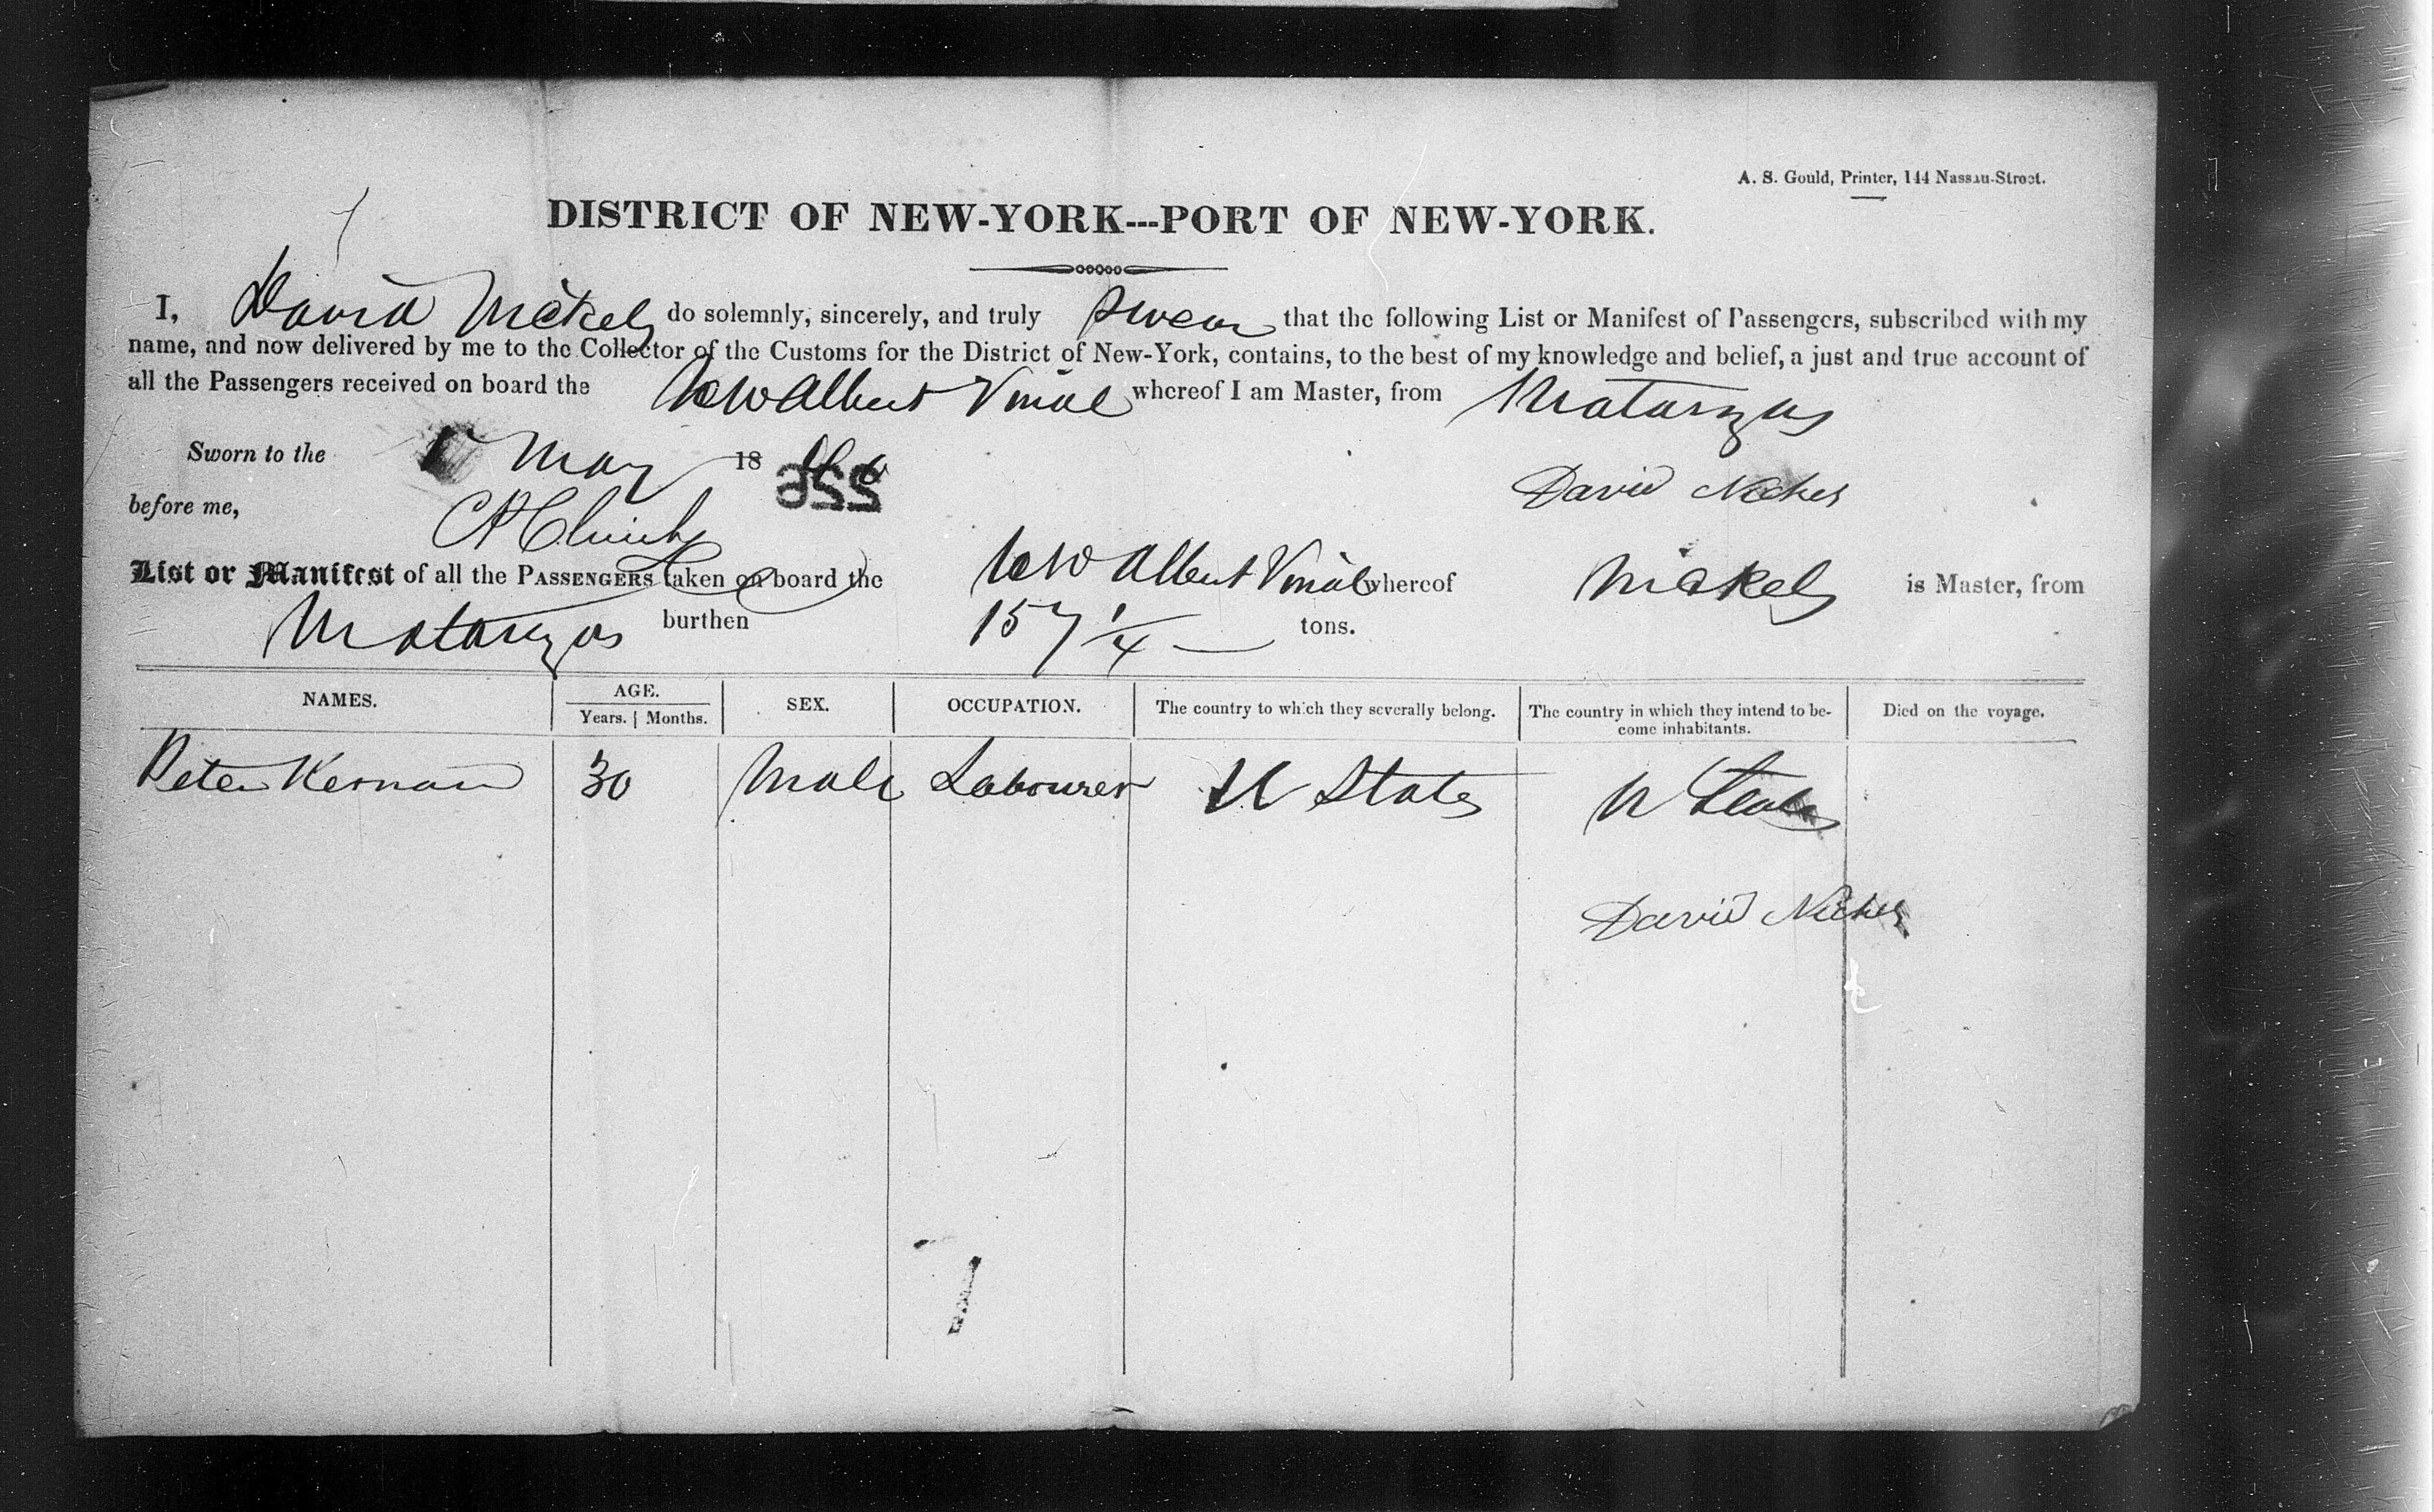 A. S. Gould, Printer, 144 Nassau-Street.
DISTRICT OF NEW-YORK---PORT OF NEW-YORK.
I, David Nickels do solemnly, sincerely, and truly swear that the following List or Manifest of Passengers, subscribed with my
name, and now delivered by me to the Collector of the Customs for the District of New-York, contains, to the best of my knowledge and belief, a just and true account of
all the Passengers received on board the Albert Vinal whereof I am Master, from Matanzas
Sworn to the May 18
before me,
David Nickels
List or Manifest of all the PASSENGERS taken on board the Albert Vinal whereof Nickels is Master, from
Matanzas burthen 157 1/4 tons.
NAMES. AGE. Years. Months. SEX. OCCUPATION. The country to which they severally belong. The country in which they intend to be-
come inhabitants. Died on the voyage.
Peter Kernan 30 Male Labourer U States U States
David Nickels